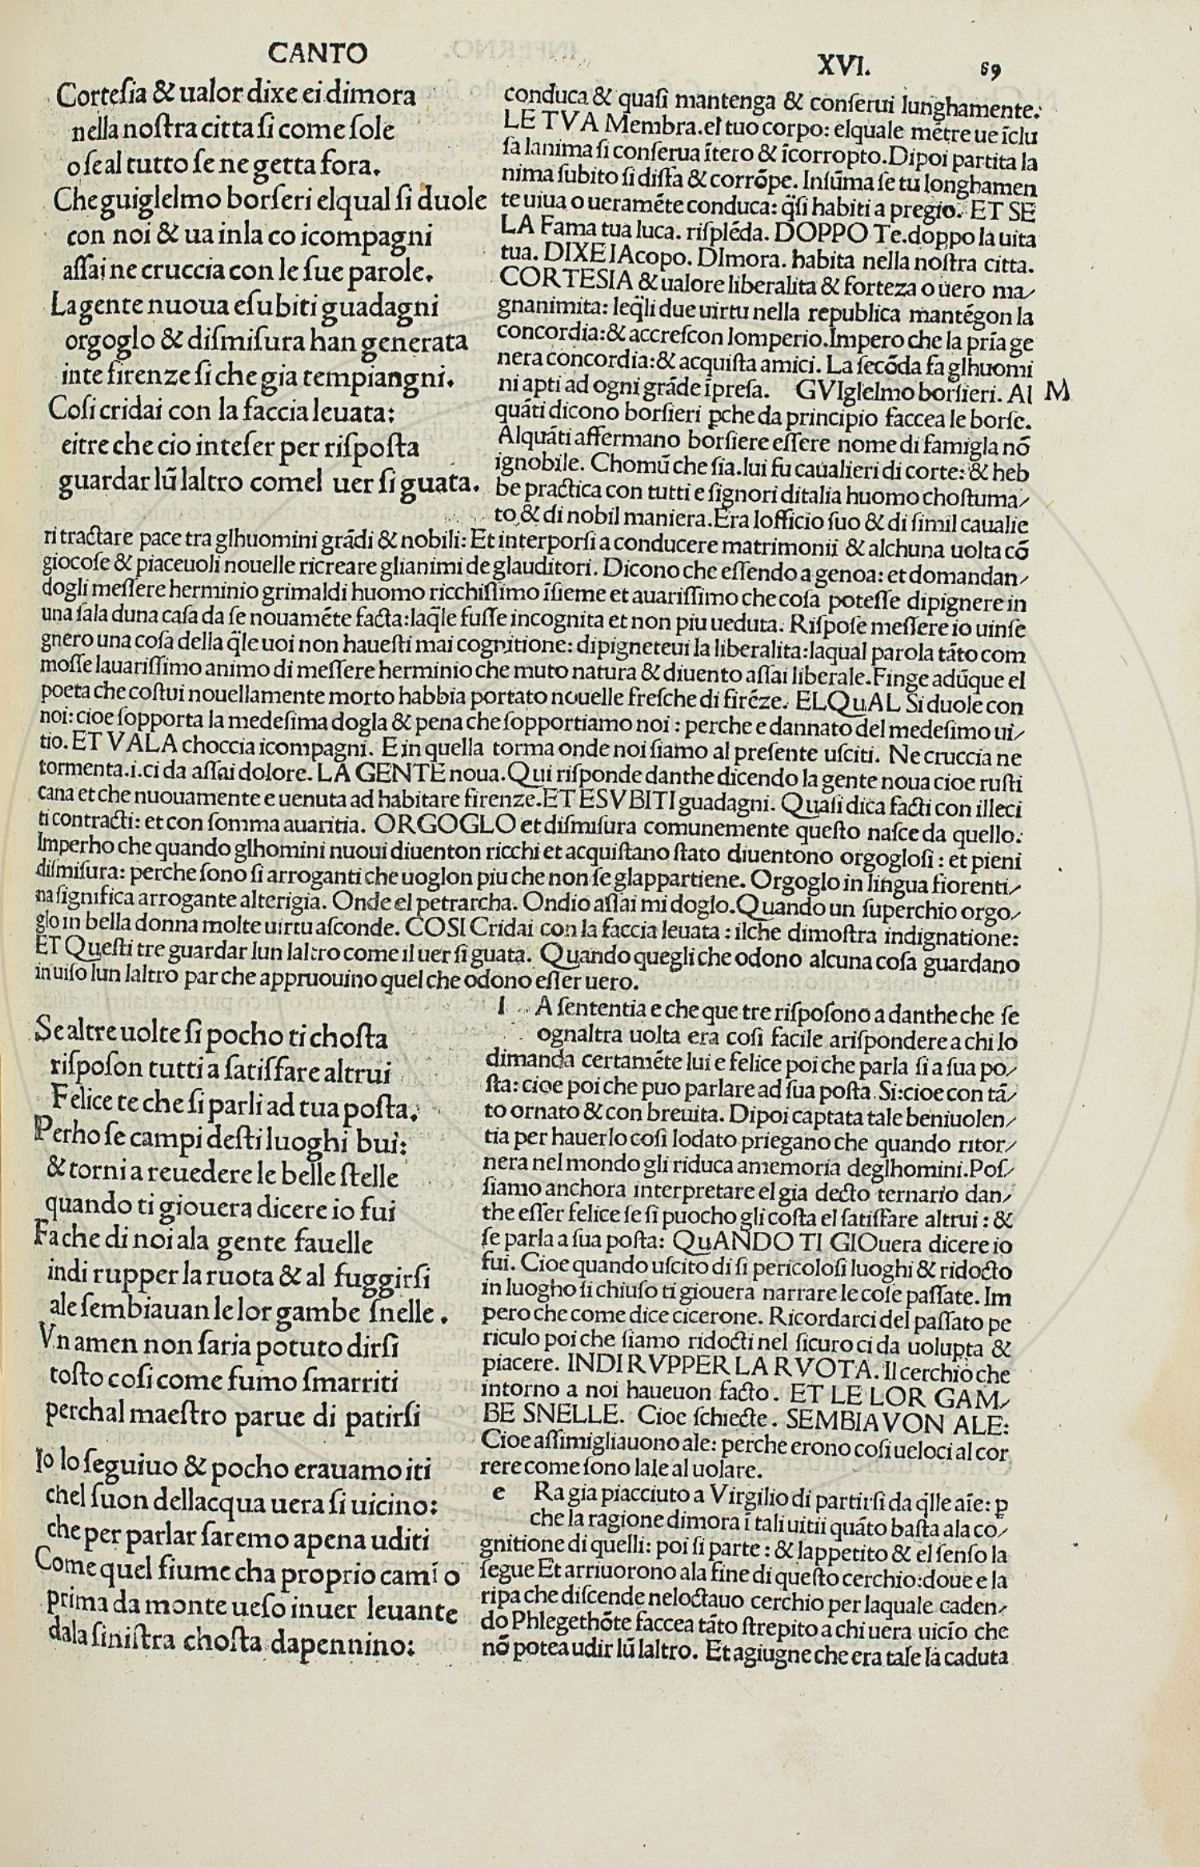 CANTO
XVI.
69
Corteſia & ualor dixe ei dimora
nella noſtra citta ſi come ſole
o ſe al tutto ſe ne getta fora.
Che guiglelmo borſeri elqual ſi duole
con noi & ua inla co icompagni
aſſai ne cruccia con le ſue parole.
La gente nuoua eſubiti guadagni
orgoglo & diſmiſura han generata
inte firenze ſi che gia tempiangni.
Coſi cridai con la faccia leuata:
eitre che cio inteſer per riſpoſta
guardar lũ laltro comel uer ſi guata.
conduca & quaſi mantenga & conſerui lunghamente.
LE TVA Membra.el tuo corpo: elquale mẽtre ue ĩclu
ſa lanima ſi conſerua ĩtero & ĩcorropto.Dipoi partita la
nima ſubito ſi diſfa & corrõpe. Inſũma ſe tu longhamen
te uiua o ueramẽte conduca: q̃ſi habiti a pregio. ET SE
LA Fama tua luca. riſplẽda. DOPPO Te.doppo la uita
tua. DIXE IAcopo. DImora. habita nella noſtra citta.
CORTESIA & ualore liberalita & forteza o uero ma⸗
gnanimita: leq̃li due uirtu nella republica mantẽgon la
concordia:& accreſcon lomperio.Impero che la prĩa ge
nera concordia:& acquiſta amici. La ſecõda fa glhuomi
ni apti ad ogni grãde ĩpreſa. GVIglelmo borſieri. Al
M
quãti dicono borſieri ꝑche da principio faccea le borſe.
Alquãti affermano borſiere eſſere nome di famigla nõ
ignobile. Chomũ che ſia.lui fu caualieri di corte: & heb
be practica con tutti e ſignori ditalia huomo choſtuma⸗
to & di nobil maniera.Era lofficio ſuo & di ſimil caualie
ri tractare pace tra glhuomini grãdi & nobili: Et interporſi a conducere matrimonii & alchuna uolta cõ
giocoſe & piaceuoli nouelle ricreare glianimi de glauditori. Dicono che eſſendo a genoa: et domandan⸗
dogli meſſere herminio grimaldi huomo ricchiſſimo ĩſieme et auariſſimo che coſa poteſſe dipignere in
una ſala duna caſa da ſe nouamẽte facta:laq̃le fuſſe incognita et non piu ueduta. Riſpoſe meſſere io uinſe
gnero una coſa della q̃le uoi non haueſti mai cognitione: dipigneteui la liberalita:laqual parola tãto com
moſſe lauariſſimo animo di meſſere herminio che muto natura & diuento aſſai liberale.Finge adũque el
poeta che coſtui nouellamente morto habbia portato nouelle freſche di firẽze. ELQuAL Si duole con
noi: cioe ſopporta la medeſima dogla & pena che ſopportiamo noi : perche e dannato del medeſimo ui⸗
tio. ET VALA choccia icompagni. E in quella torma onde noi ſiamo al preſente uſciti. Ne cruccia ne
tormenta.i.ci da aſſai dolore. LA GENTE noua.Qui riſponde danthe dicendo la gente noua cioe ruſti
cana et che nuouamente e uenuta ad habitare firenze.ET ESVBITI guadagni. Quaſi dica facti con illeci
ti contracti: et con ſomma auaritia. ORGOGLO et diſmiſura comunemente queſto naſce da quello.
Imperho che quando glhomini nuoui diuenton ricchi et acquiſtano ſtato diuentono orgogloſi : et pieni
diſmiſura: perche ſono ſi arroganti che uoglon piu che non ſe glappartiene. Orgoglo in lingua fiorenti⸗
na ſignifica arrogante alterigia. Onde el petrarcha. Ondio aſſai mi doglo.Quando un ſuperchio orgo⸗
glo in bella donna molte uirtu aſconde. COSI Cridai con la faccia leuata : ilche dimoſtra indignatione:
ET Queſti tre guardar lun laltro come il uer ſi guata. Quando quegli che odono alcuna coſa guardano
inuiſo lun laltro par che appruouino quel che odono eſſer uero.
Se altre uolte ſi pocho ti choſta
riſpoſon tutti a ſatiſfare altrui
Felice te che ſi parli ad tua poſta.
Perho ſe campi deſti luoghi bui:
& torni a reuedere le belle ſtelle
quando ti giouera dicere io fui
Fa che di noi ala gente fauelle
indi rupper la ruota & al fuggirſi
ale ſembiauan le lor gambe ſnelle.
Vn amen non ſaria potuto dirſi
toſto coſi come fumo ſmarriti
perchal maeſtro parue di patirſi
Io lo ſeguiuo & pocho erauamo iti
chel ſuon dellacqua uera ſi uicino:
che per parlar ſaremo apena uditi
Come quel fiume cha proprio camĩ o
prima da monte ueſo inuer leuante
dala ſiniſtra choſta dapennino:
l A ſententia e che que tre riſpoſono a danthe che ſe
ognaltra uolta era coſi facile ariſpondere a chi lo
dimanda certamẽte lui e felice poi che parla ſi a ſua po⸗
ſta: cioe poi che puo parlare ad ſua poſta.Si:cioe con tã⸗
to ornato & con breuita. Dipoi captata tale beniuolen⸗
tia per hauerlo coſi lodato priegano che quando ritor⸗
nera nel mondo gli riduca amemoria deglhomini.Poſ⸗
ſiamo anchora interpretare el gia decto ternario dan⸗
the eſſer felice ſe ſi puocho gli coſta el ſatiſfare altrui : &
ſe parla a ſua poſta: QuANDO TI GIOuera dicere io
fui. Cioe quando uſcito di ſi pericoloſi luoghi & ridocto
in luogho ſi chiuſo ti giouera narrare le coſe paſſate. Im
pero che come dice cicerone. Ricordarci del paſſato pe
riculo poi che ſiamo ridocti nel ſicuro ci da uolupta &
piacere. INDI RVPPER LA RVOTA. Il cerchio che
intorno a noi haueuon facto. ET LE LOR GAM⸗
BE SNELLE. Cioe ſchiecte. SEMBIAVON ALE:
Cioe aſſimigliauono ale: perche erono coſi ueloci al cor
rere come ſono lale al uolare.
e Ra gia piacciuto a Virgilio di partirſi da q̃lle aĩe: ꝑ
che la ragione dimora ĩ tali uitii quãto baſta ala co⸗
gnitione di quelli: poi ſi parte : & lappetito & el ſenſo la
ſegue Et arriuorono ala fine di queſto cerchio:doue e la
ripa che diſcende neloctauo cerchio per laquale caden⸗
do Phlegethõte faccea tãto ſtrepito a chi uera uicĩo che
nõ potea udir lũ laltro. Et agiugne che era tale la caduta